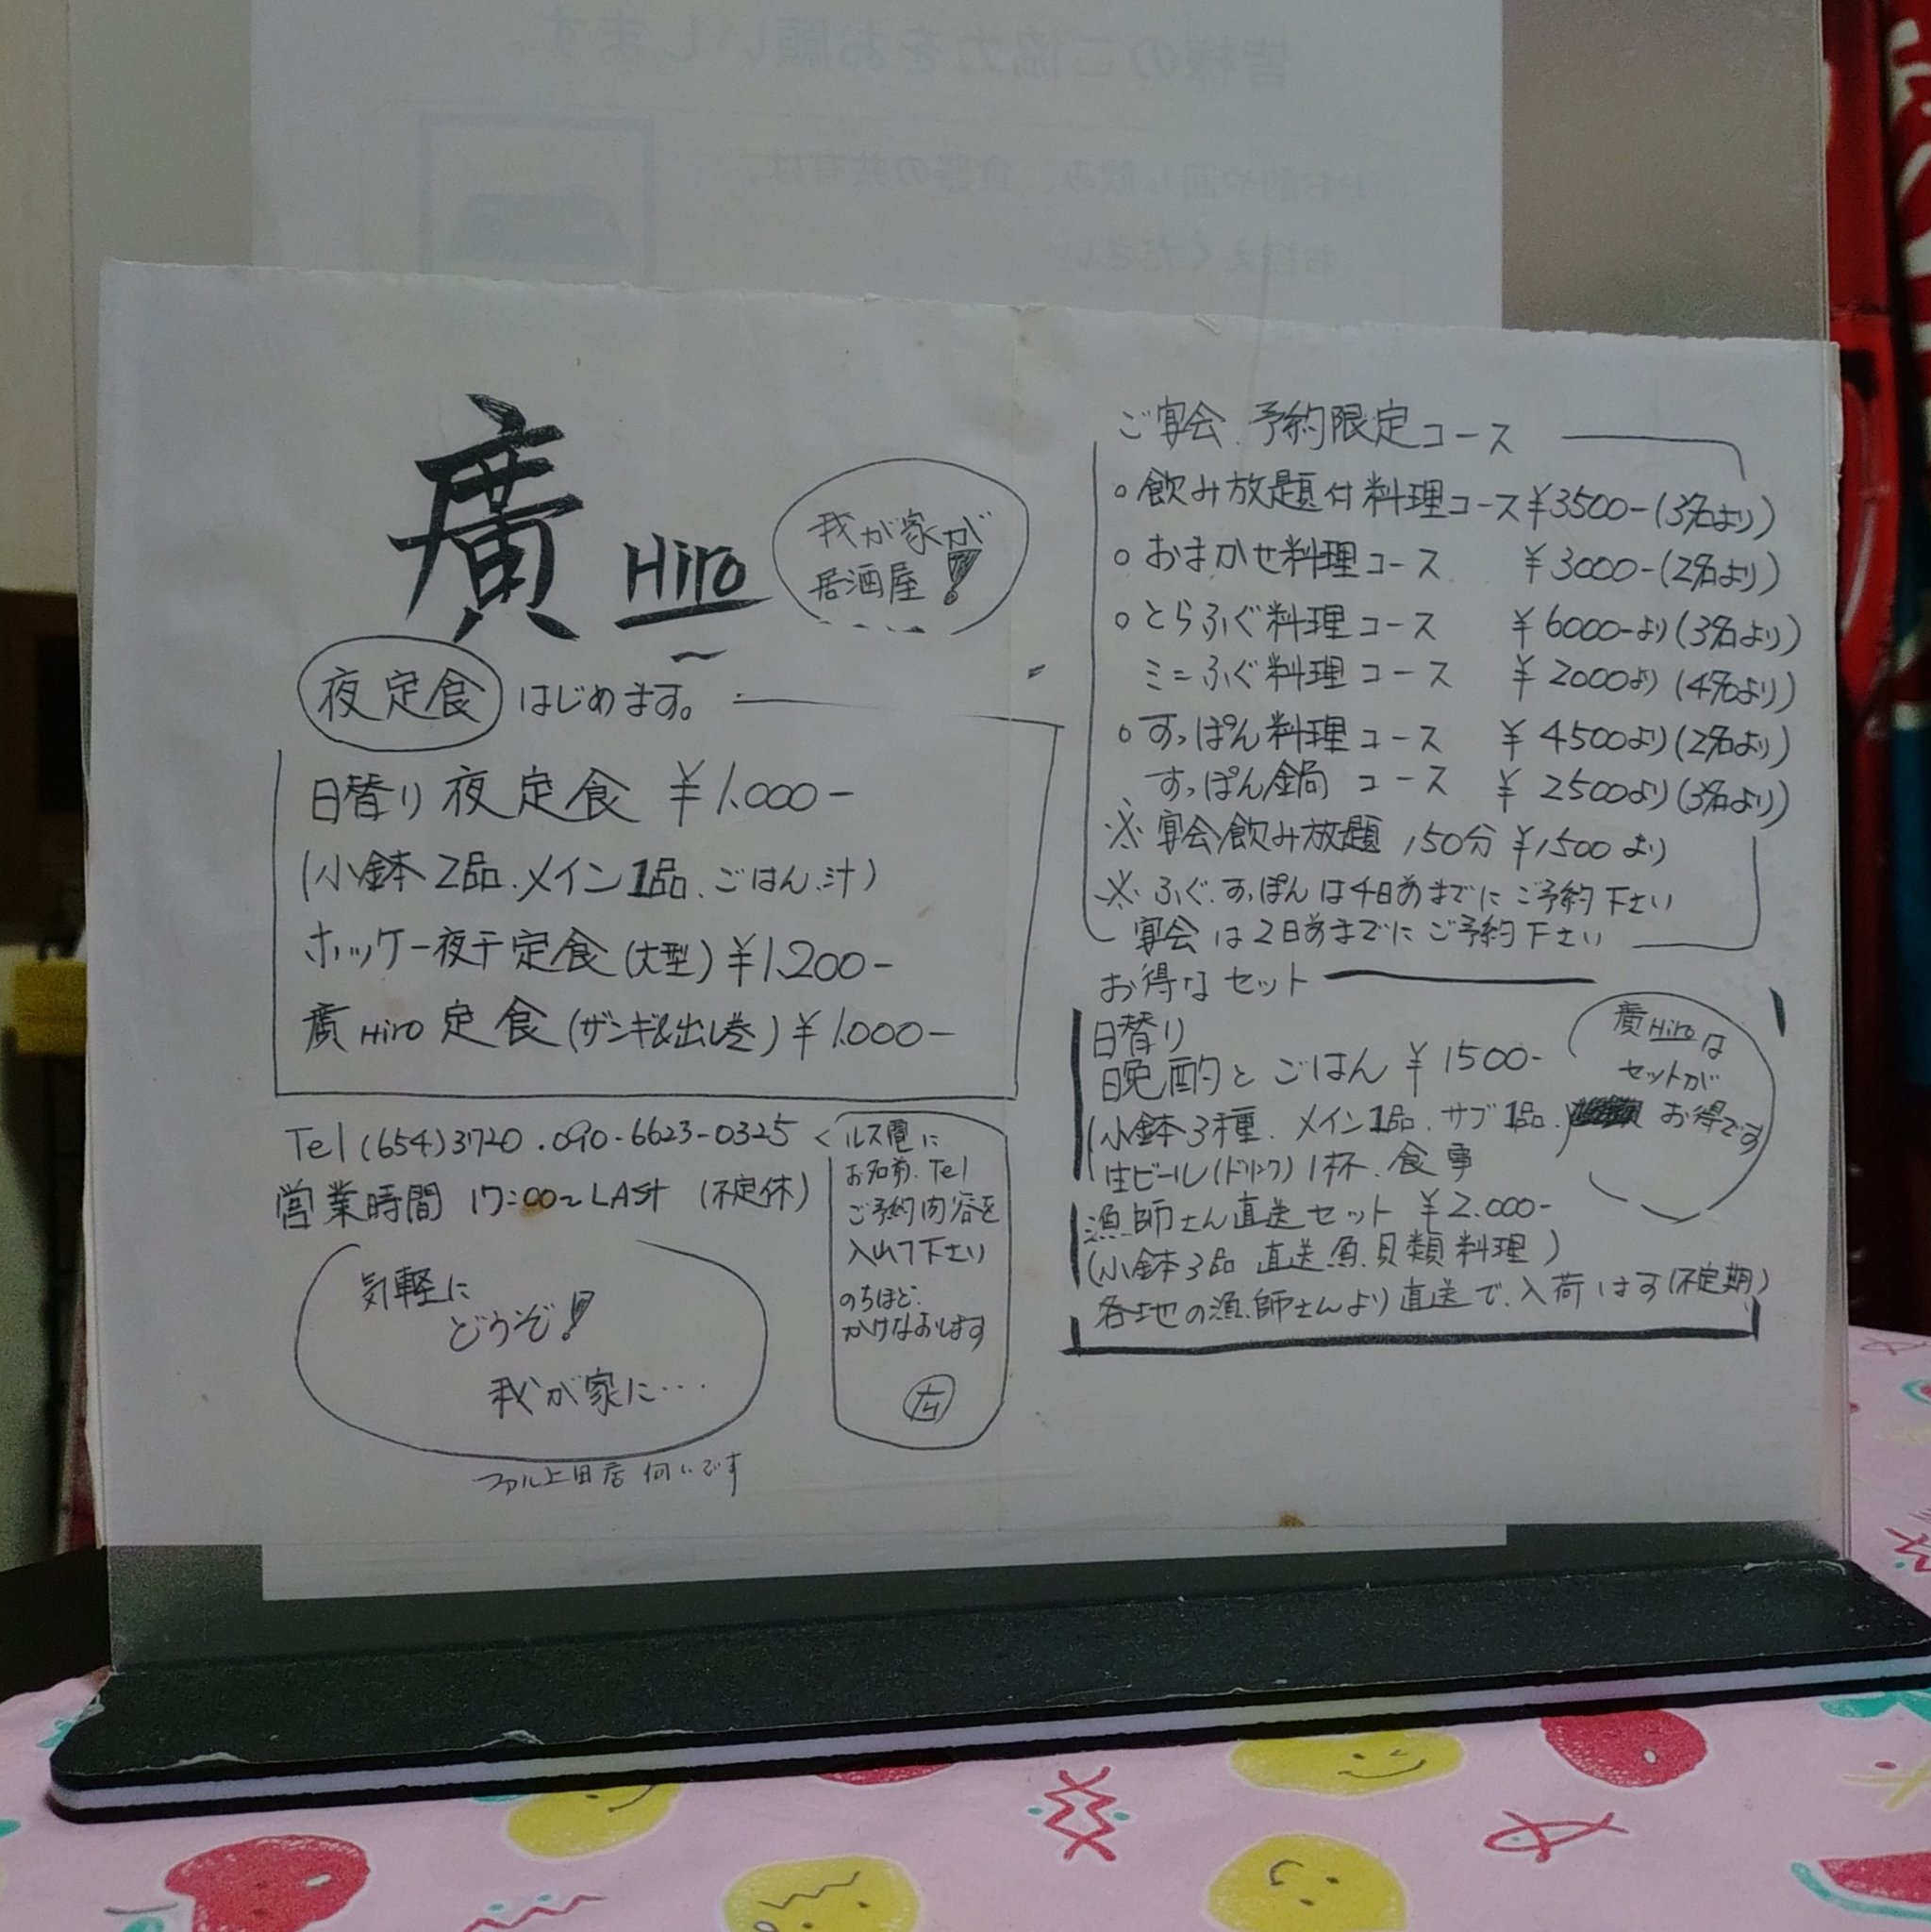 皆様のご協力をお願いします。
お酌や回し飲み、食器の共有は、
お控えください
廣 Hiro
我が家が
居酒屋!
夜定食 はじめます。
日替り夜定食 ¥1.000-
(小鉢2品.メイン1品、ごはん、汁)
ホッケ一夜干定食(大型)¥1.200-
廣Hiro定食(ザンギ&出し巻)¥1.000-
Tel (654)3720.090-6623-0325
営業時間 17:00~LAST (不定休)
気軽に
どうぞ!
我が家に…
ルス電に
お名前.Tel
ご予約内容を
入れて下さい
のちほど.
かけなおします
上田店 向いです
ご宴会.予約限定コース
○飲み放題付料理コース¥3500-(3名より)
○おまかせ料理コース ¥3000-(2名より)
○とらふぐ料理コース ¥6000-より(3名より)
ミニふぐ料理コース ¥2000より(4名より)
○すっぽん料理コース ¥4500より(2名より)
すっぽん鍋 コース ¥2500より(3名より)
※宴会飲み放題 150分 ¥1500より
※ふぐ.すっぽんは4日前までにご予約下さい
宴会は2日前までにご予約下さい
お得なセット
日替り
晩酌とごはん ¥1500-
(小鉢3種.メイン1品.サブ1品.)
生ビール(ドリンク)1杯.食事
漁師さん直送セット ¥2.000-
(小鉢3品 直送魚貝類料理)
各地の漁師さんより直送で.入荷します(不定期)
廣Hiroは
セットが
お得です